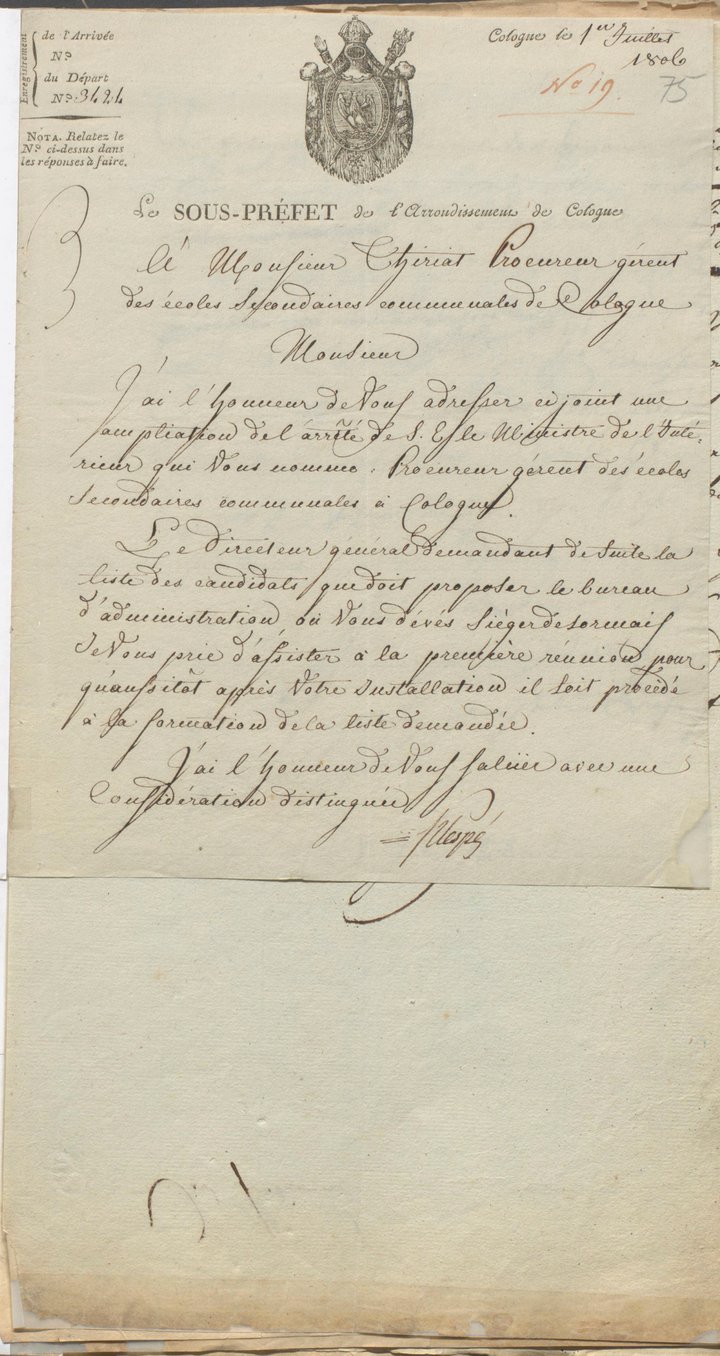 Enregistrement
de l'Arrivée
N.º
du Départ
N.º 3424
NOTA. Relatez le
N.º ci-dessus dans
les réponses à faire.
Cologne le 1er Juillet
1806
No 19.
75
Le SOUS-PRÉFET de l'Arrondissement de Cologne
3
A Monsieur Thiriat Procureur gérent
des écoles Secondaires communales de Cologne
Monsieur
J'ai l'honneur de Vous adresser cijoint une
ampliation de l'arrêté de S. E. le Ministre de l'Inté-
rieur qui Vous nomme : Procureur gérent des écoles
Secondaires communales à Cologne.
Le Directeur général demandant de Suite la
liste des candidats que doit proposer le bureau
d'administration où Vous dévés Siéger desormais
Je Vous prie d'assister à la première réunion pour
qu'aussitôt après Votre Installation il soit procédé
à la formation de la liste demandée.
J'ai l'honneur de Vous saluer avec une
Considération distinguée